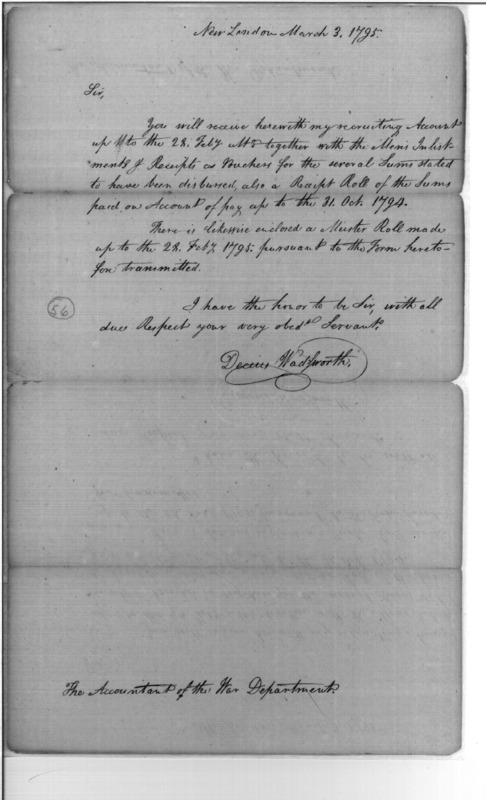 New London March 3. 1795.
Sir,
You will receive herewith my recruiting Account
up to the 28. Feby ulto together with the Men's Inlist
ments & Receipts as Vouchers for the several Sums stated
to have been disbursed, also a Receipt Roll of the Sums
paid on Account of pay up to the 31. Oct. 1794.
There is likewise enclosed a Muster Roll made
up to the 28. Feby 1795 pursuant to the Form hereto-
fore transmitted.
56
I have the honor to be Sir, with all
due Respect your very obedt Servant.
Decius Wadsworth.
The Accountant of the War Department.